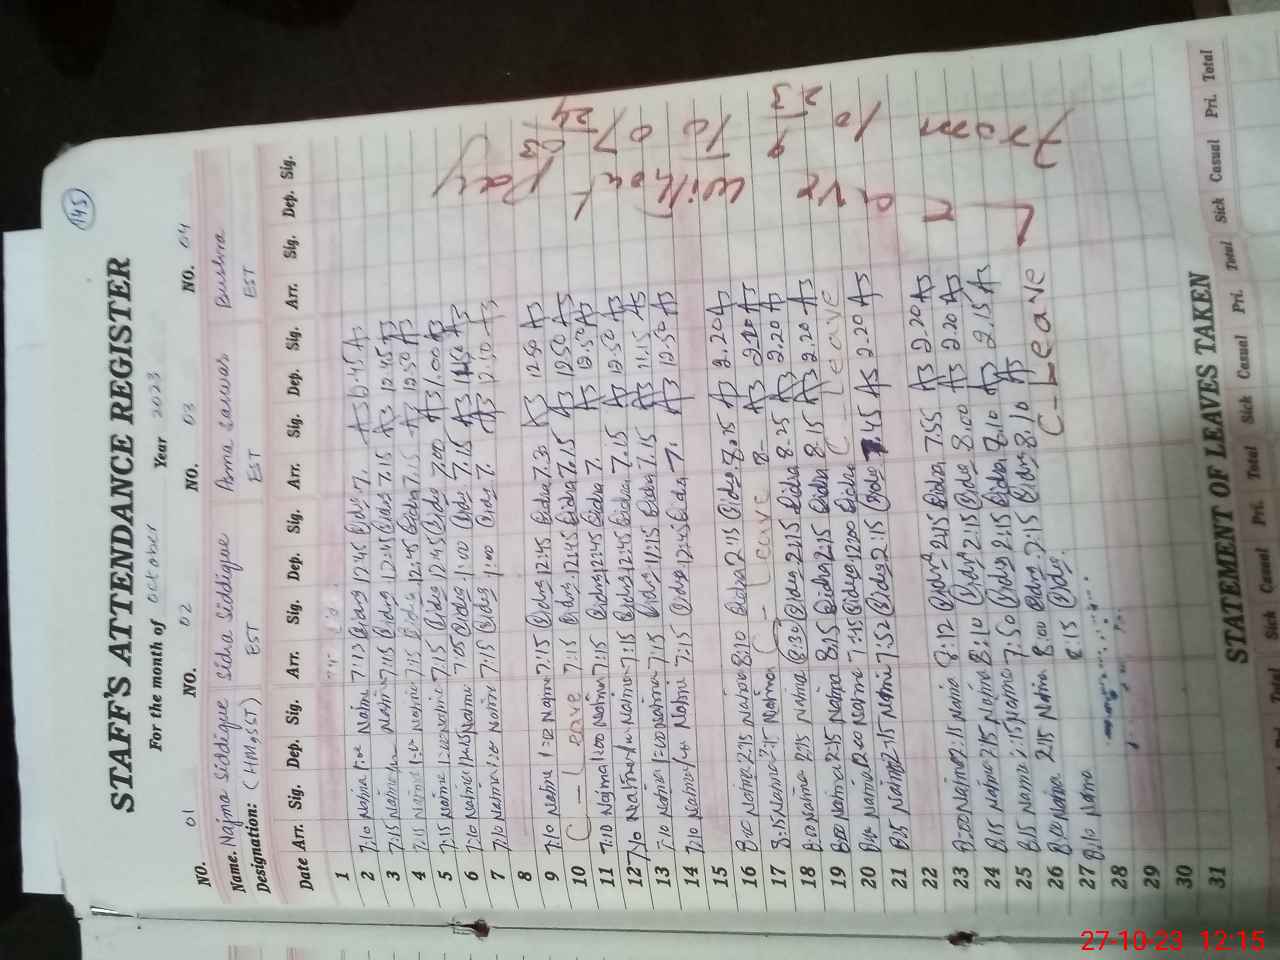 145
STAFF'S ATTENDANCE REGISTER
For the month of October Year 2023
NO. 01 NO. 02 NO. 03 NO. 04
Name. Najma Siddique Sidra Siddique Asma Sarwar Bushra
Designation: (HM,SST) EST EST EST
Date Arr. Sig. Dep. Sig. Arr. Sig. Dep. Sig. Arr. Sig. Dep. Sig. Arr. Sig. Dep. Sig.
1
2 7:10 Najma Najma 7:13 Sidra 12:45 Sidra 7. A3 A3
3 7:15 Najma Najma 7:15 Sidra 12:45 Sidra 7.15 A3 12.45 A3
4 7:15 Najma Najma 7:15 Sidra 12:45 Sidra 7.15 A3 12.50 A3
5 7:15 Najma Najma 7:15 Sidra 12:45 Sidra 7.00 A3 1.00 A3
6 7:10 Najma Najma 7:05 Sidra 1:00 Sidra 7.15 A3 A3
7 7:10 Najma Najma 7:15 Sidra 1:00 Sidra 7. A3 12.50 A3
8
9 7:10 Najma 1:00 Najma 7:15 Sidra 12:45 Sidra 7.30 A3 12.50 A3
10 C - Leave 7:15 Sidra 12:45 Sidra 7.15 A3 12.50 A3
11 7:10 Najma 1:00 Najma 7:15 Sidra 12:45 Sidra 7. A3 12.50 A3
12 7:10 Najma Najma 7:15 Sidra 12:45 Sidra 7.15 A3 12.50 A3
13 7:10 Najma 1:00 Najma 7:15 Sidra 11:15 Sidra 7.15 A3 11.15 A3
14 7:10 Najma Najma 7:15 Sidra 12:45 Sidra 7. A3 12.50 A3
15
16 8:00 Najma 2:15 Najma 8:10 Sidra 2:15 Sidra 8.15 A3 2.20 A3
17 8:15 Najma 2:15 Najma C - Leave 8- A3 2.20 A3
18 8:00 Najma 2:15 Najma 8:30 Sidra 2:15 Sidra 8.25 A3 2.20 A3
19 8:00 Najma 2:15 Najma 8:15 Sidra 2:15 Sidra 8.15 A3 2.20 A3
20 Najma 12:00 Najma 7:45 Sidra 12:00 Sidra C - Leave
21 8:15 Najma 2:15 Najma 7:52 Sidra 2:15 Sidra 7.45 A3 2.20 A3
22
23 8:00 Najma 2:15 Najma 8:12 Sidra 2:15 Sidra 7.55 A3 2.20 A3
24 8:15 Najma 2:15 Najma 8:10 Sidra 2:15 Sidra 8.00 A3 2.20 A3
25 8:15 Najma 2:15 Najma 7:50 Sidra 2:15 Sidra 8.10 A3 2.15 A3
26 8:00 Najma 2:15 Najma 8:00 Sidra 2:15 Sidra 8.10 A3
27 8:10 Najma 8:15 Sidra C - Leave
28
29
30
31
Without Pay
From
STATEMENT OF LEAVES TAKEN
Total Sick Casual Pri. Total Sick Casual Pri. Total Sick Casual Pri. Total
27-10-23 12:15